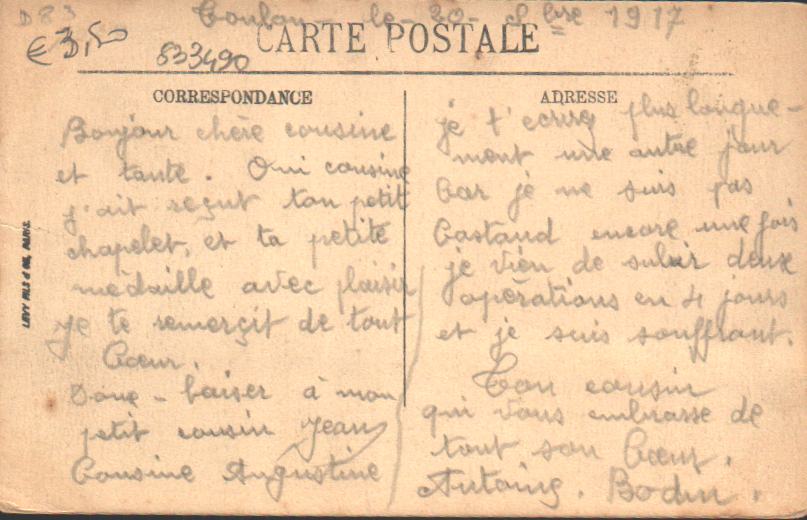 D83
€ 3,50
833490
Toulon - le - 20 - 8bre 1917
CARTE POSTALE
CORRESPONDANCE
Bonjour chère cousine
et tante. Oui cousine
j'ait reçut ton petit
chapelet, et ta petite
médaille avec plaisir
je te remerçit de tout
Cœur.
Donne - baiser à mon
petit cousin Jean
Cousine Angustine
ADRESSE
je t'ecrirez plus longue-
ment une autre jour
Car je ne suis pas
Costaud encore une fois
je vien de subir deux
opérations en 4 jours
et je suis souffrant.
Ton cousin
qui vous embrasse de
tout son Cœur.
Antoine. Bodin.
LEVY FILS & Cie, PARIS.